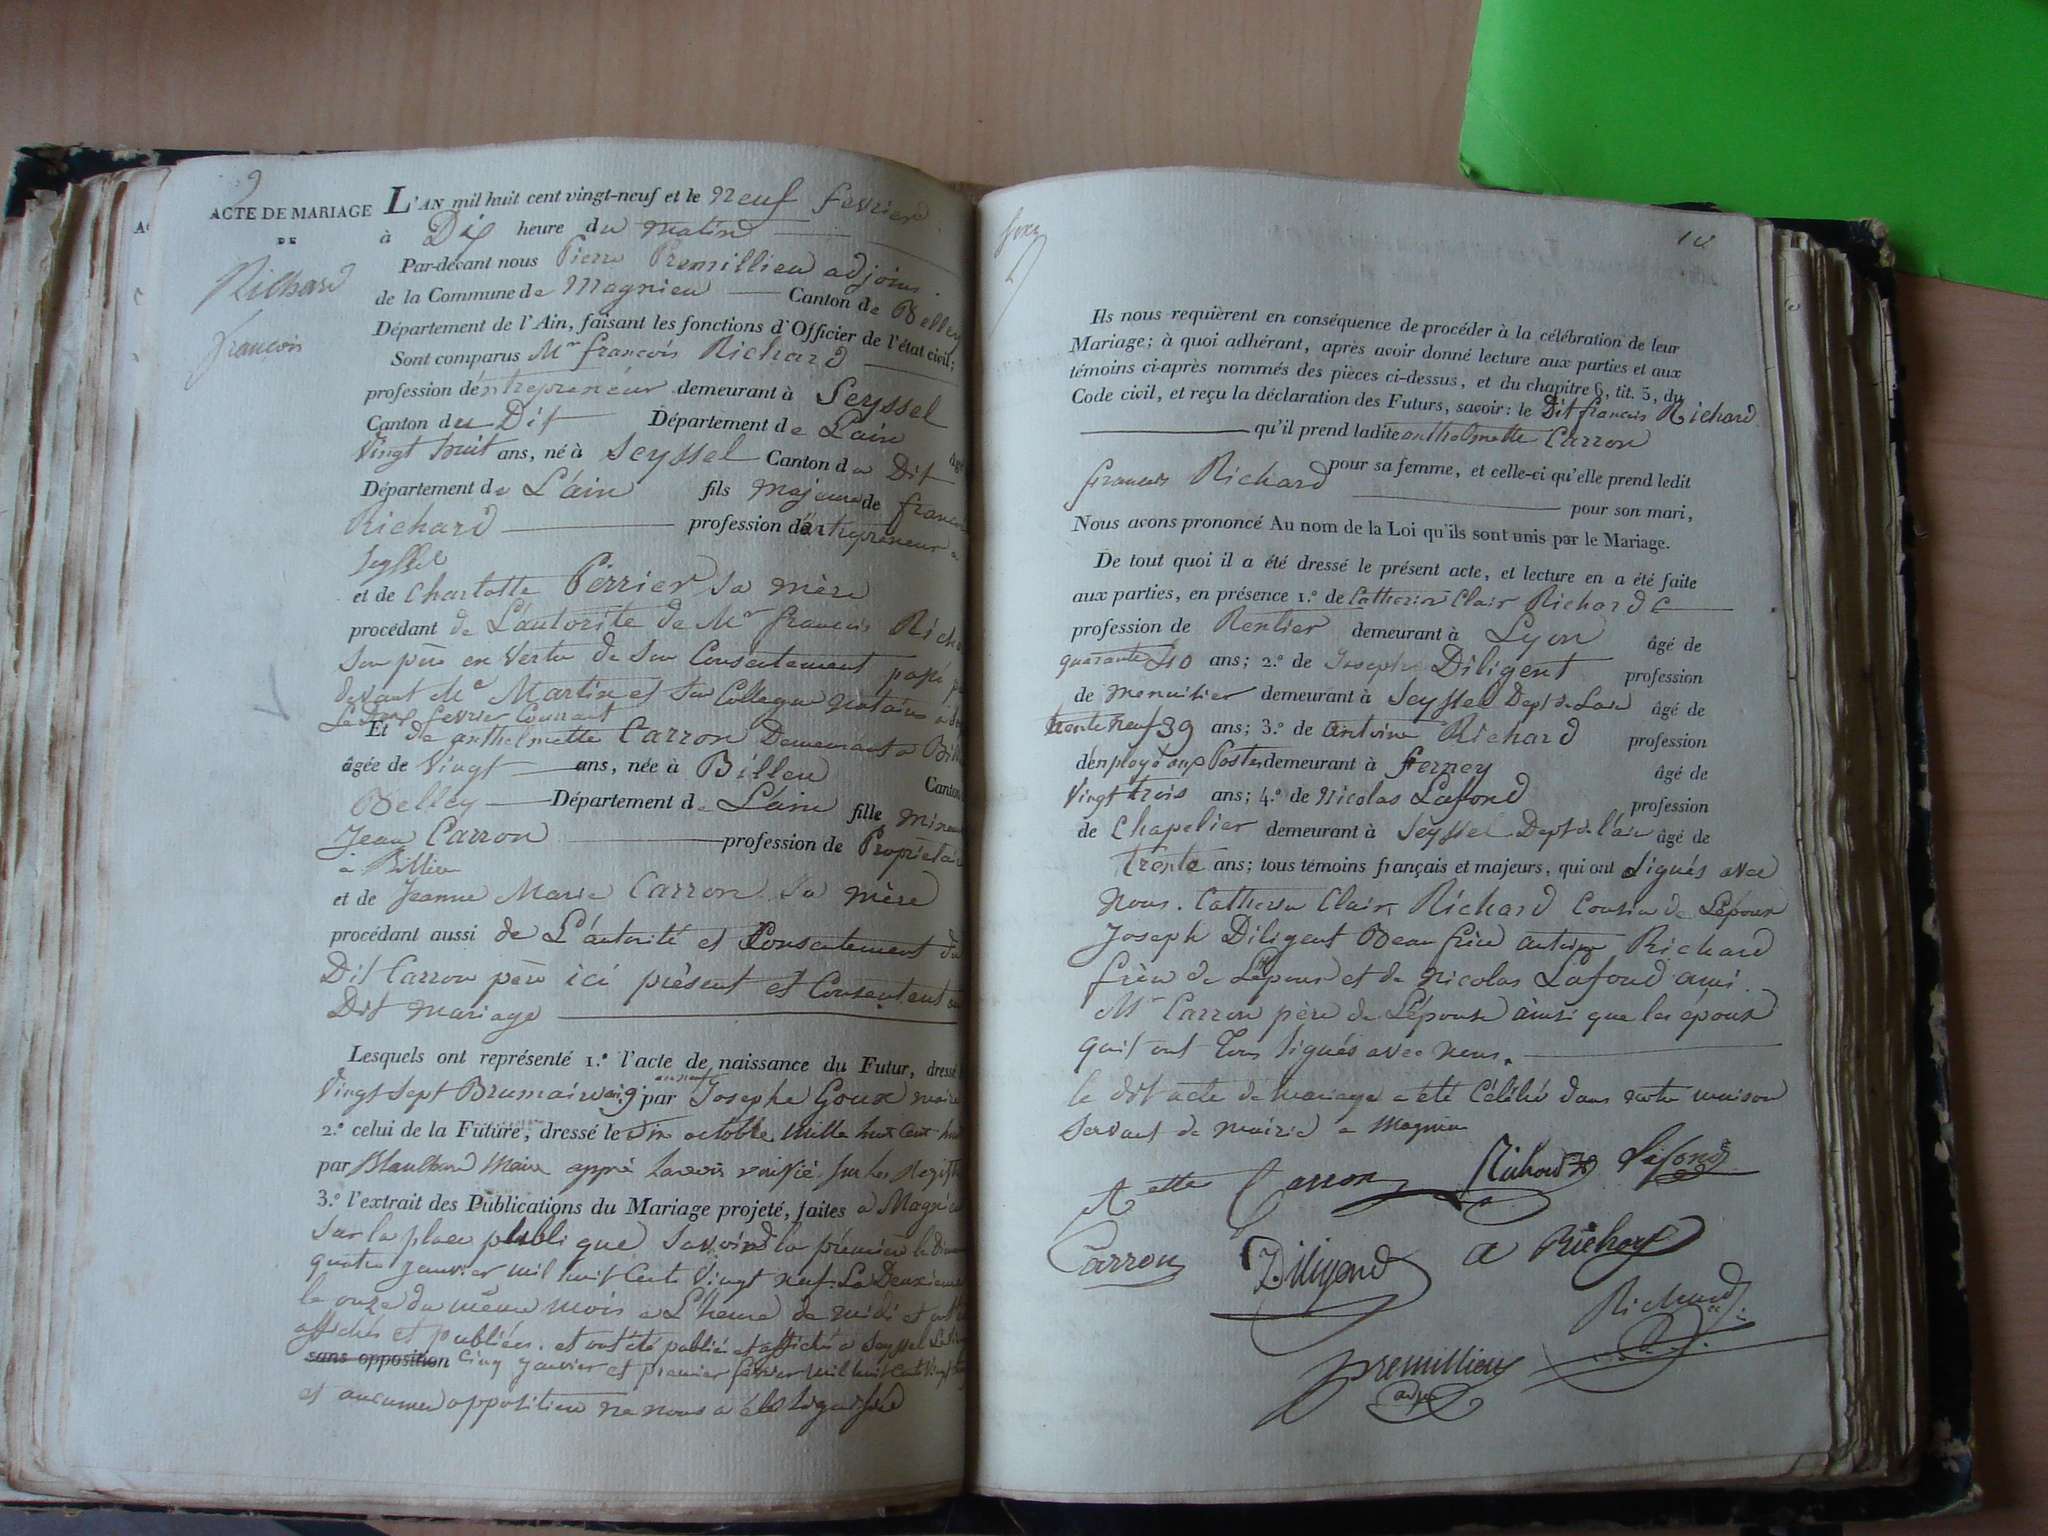 9
ACTE DE MARIAGE
DE
Richard
francois
L'AN mil huit cent vingt-neuf et le Neuf fevrier
à Dix heure du matin
Par-devant nous Pierre Premillieu adjoint
de la Commune de Magnieu Canton de Belley
Département de l'Ain, faisant les fonctions d'Officier de l'état civil;
Sont comparus Mr francois Richard
profession d'entrepreneur demeurant à Seyssel
Canton du Dit Département de L'ain âgé
Vingt huit ans, né à Seyssel Canton du Dit
Département de L'ain fils majeur de francois
Richard profession d'entrepreneur a
Seyssel
et de Charlotte Perrier Sa mère
procédant de L'autorité de Mr francois Richa
Son père en Vertu de Son Consentement passé
devant Me Martin et Son Collegue notaire
fevrier Courant
Et de anthelmette Carron Demeurant a
âgée de Vingt ans, née à Billeu Canton
Belley Département de L'ain fille mineu
Jean Carron profession de Propriétai
a Billieu
et de Jeanne Marie Carron Sa mère
procédant aussi de L'autorité et Consentement du
Dit Carron père ici présent et Consentent au
Dit mariage
Lesquels ont représenté 1.º l'acte de naissance du Futur, dressé
Vingt Sept Brumaire an 9 par Josephe Goux maire
2.º celui de la Future, dressé le dix octobre mille huit Cent huit
par Maire appré Lavoir vérifié Sur les Regist
3.º l'extrait des Publications du Mariage projeté, faites a Magnieu
Sur la place publique Savoir la première le Dim
quatre janvier mil huit Cent Vingt neuf. La Deuxieme
le onze du même mois a L'heure de midi et ont
affichés et publiées. et ont été publié et affiché a Seyssel
sans opposition cinq janvier et premier fevrier mil huit Cent Vingt
et aucune opposition ne nous a été Signifiée
10
Ils nous requièrent en conséquence de procéder à la célébration de leur
Mariage; à quoi adhérant, après avoir donné lecture aux parties et aux
témoins ci-après nommés des pièces ci-dessus, et du chapitre 6, tit. 5, du
Code civil, et reçu la déclaration des Futurs, savoir: le Dit francois Richard
qu'il prend ladite anthelmette Carron
pour sa femme, et celle-ci qu'elle prend ledit
francois Richard pour son mari,
Nous avons prononcé Au nom de la Loi qu'ils sont unis par le Mariage.
De tout quoi il a été dressé le présent acte, et lecture en a été faite
aux parties, en présence 1.º de Catherin Clair Richard
profession de Rentier demeurant à Lyon âgé de
quarante 40 ans; 2.º de Joseph Diligent profession
de menuisier demeurant à Seyssel Dept de Lain âgé de
trente neuf 39 ans; 3.º de antoine Richard profession
d'enployé aux Postes demeurant à ferney âgé de
Vingt trois ans; 4.º de Nicolas Lafond profession
de Chapelier demeurant à Seyssel Dept de l'ain âgé de
trente ans; tous témoins français et majeurs, qui ont Signés avec
nous. Catherin Clair Richard Cousin de L'époux
Joseph Diligent Beau frère antoine Richard
frère de L'époux et de Nicolas Lafond ami.
Mr Carron père de L'épouse ainsi que les époux
qui ont Tous Signés avec nous.
le dit acte de mariage a été Célébré dans notre maison
Servant de mairie a Magnieu
A ette Carron Richard Lafond
Carron Diligend a Richard
Richard
premillieu
adj